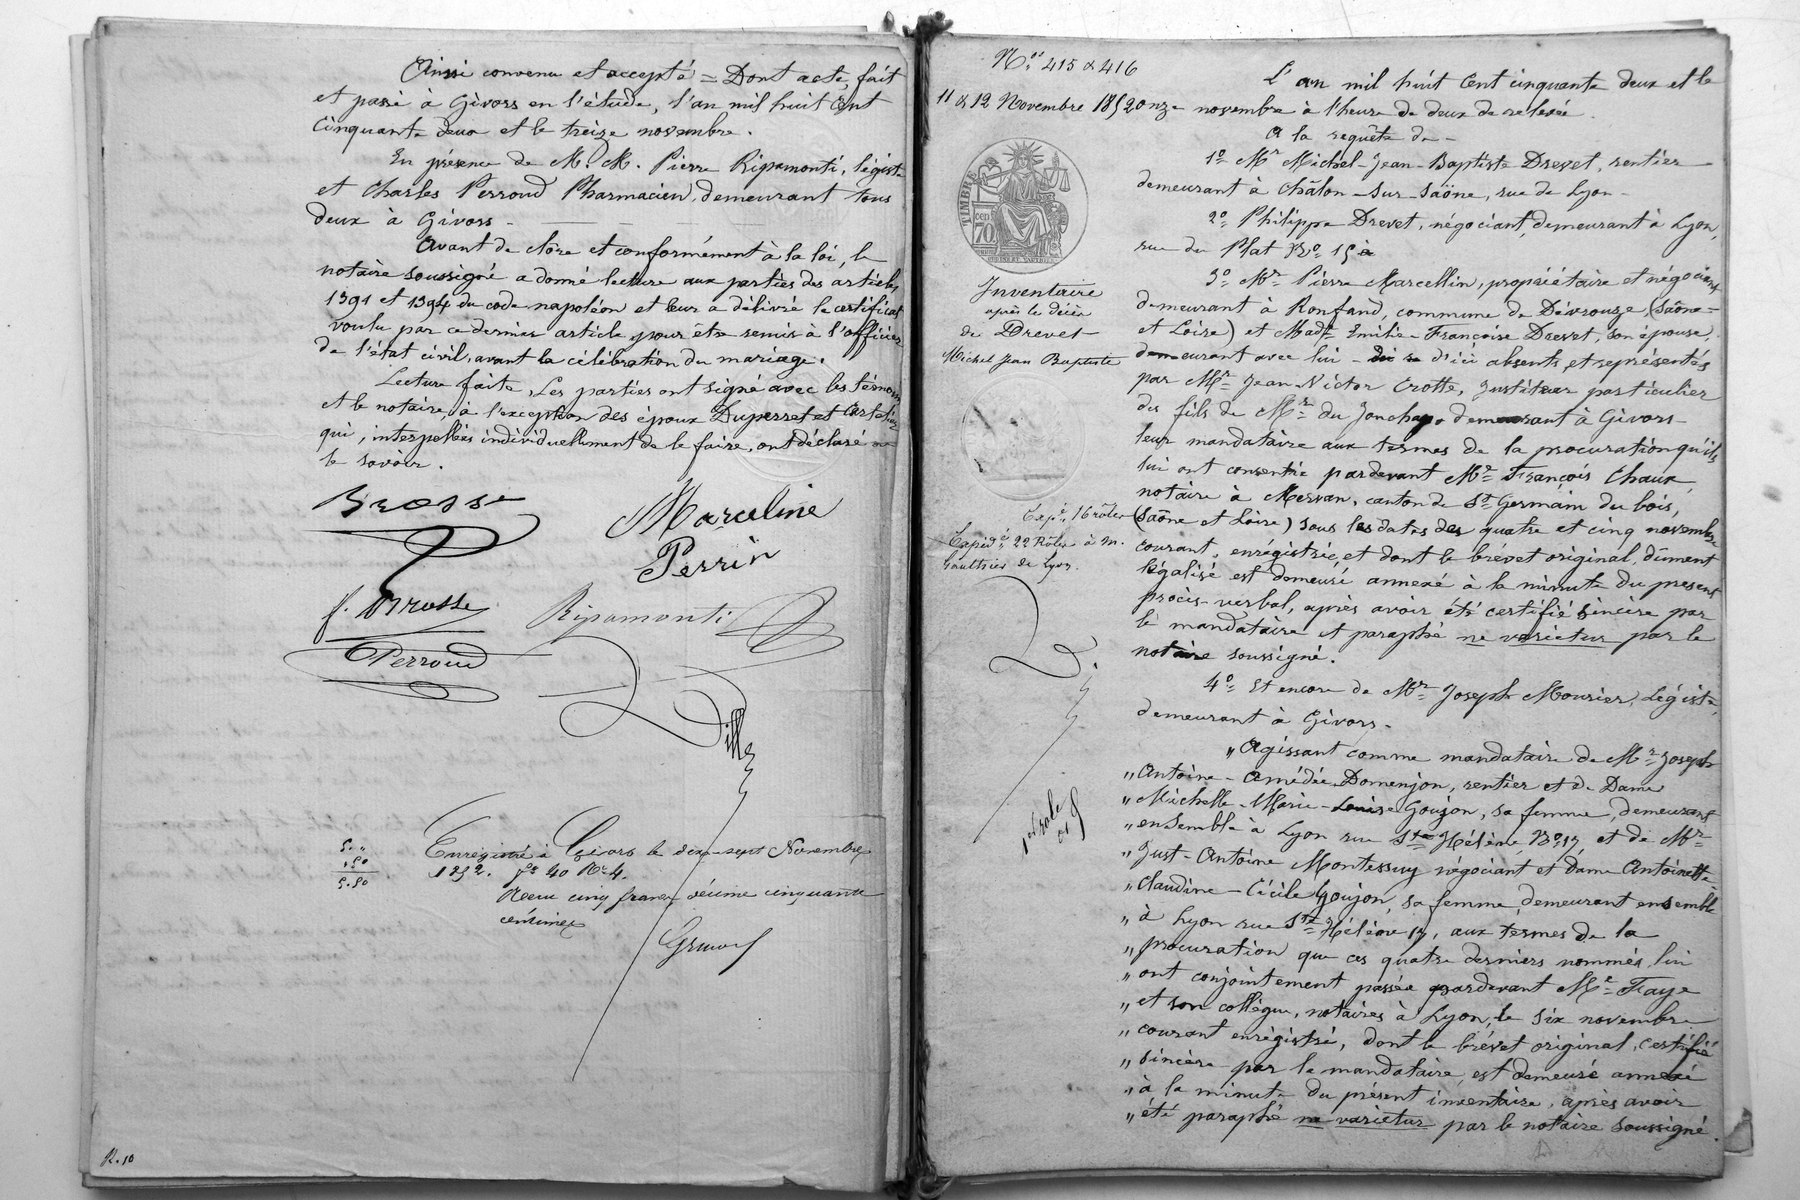 Ainsi convenu et accepté = Dont acte, fait
et passé à Givors en l'étude, l'an mil huit cent
cinquante deux et le treize novembre.
En présence de M. M. Pierre Ripamonti, légiste
et Charles Perroud Pharmacien, demeurant tous
deux à Givors -
Avant de clôre et conformément à la loi, le
notaire soussigné a donné lecture aux parties des articles
1391 et 1394 du code napoléon et leur a délivré le certificat
voulu par ce dernier article pour être remis à l'officier
de l'état civil, avant la célébration du mariage.
Lecture faite, Les parties ont signé avec les témoins
et le notaire, à l'exception des époux Duperret et
qui, interpellés individuellement de le faire, ont déclaré ne
le savoir.
Brosse
Marceline
Perrin
f. Brosse
Ripamonti
Perroud
Enregistré à Givors le dix-sept Novembre
1852. f° 40 R° 4.
Reçu cinq francs décime cinquante
centimes
5. "
, 50
5. 50
R. 10
N.os 415 & 416
11 & 12 Novembre 1852
TIMBRE
70 CEN
Inventaire
après le décès
de Drevet
Michel Jean Baptiste
Exp.é 16 rôles
Expéd.é 22 Rôles à M.
Gaultier de Lyon.
L'an mil huit cent cinquante deux et le
onze novembre à l'heure de deux de relevée.
A la requête de -
1° Mr Michel-Jean-Baptiste Drevet, rentier
demeurant à Châlon-sur-Saône, rue de Lyon -
2° Philippe Drevet, négociant, demeurant à Lyon,
rue du Plat N° 15
3° Mr Pierre Marcellin, propriétaire et négociant
demeurant à Ronfand, commune de Dévrouze, (Saône-
et Loire) et Made Emilie-Françoise Drevet, son épouse,
demeurant avec lui - d'ici absents, et représentés
par Mr Jean-Victor Crotte, Instituteur particulier
des fils de Mr du Jonchay, demeurant à Givors -
leur mandataire aux termes de la procuration qu'ils
lui ont consentie pardevant Me François Chaux,
notaire à Mervan, canton de St Germain du bois,
(Saône et Loire) sous les dates des quatre et cinq novembre
courant, enregistrée, et dont le brévet original, dûment
légalisé est demeuré annexé à la minute du présent
procès-verbal, après avoir été certifié sincère par
le mandataire et paraphé ne varietur par le
notaire soussigné.
4° Et encore de Mr Joseph Mourier, Légiste,
demeurant à Givors -
" Agissant comme mandataire de Mr Joseph
" Antoine-Amédée Domenjon, rentier et de Dame
" Michelle-Marie-Louise Goujon, sa femme, demeurant
" ensemble à Lyon rue Ste Hélène, N° 17, et de Mr
" Just-Antoine Montessuy négociant et dame Antoinette
" Claudine-Cécile Goujon, sa femme, demeurant ensemble
" à Lyon rue Ste Hélène 17, aux termes de la
" procuration que ces quatre derniers nommés lui
" ont conjointement passée pardevant Me Faye
" et son collègue, notaires à Lyon, le six novembre
" courant enregistré, dont le brévet original, certifié
" sincère par le mandataire, est demeuré annexé
" à la minute du présent inventaire, après avoir
" été paraphé ne varietur par le notaire soussigné.